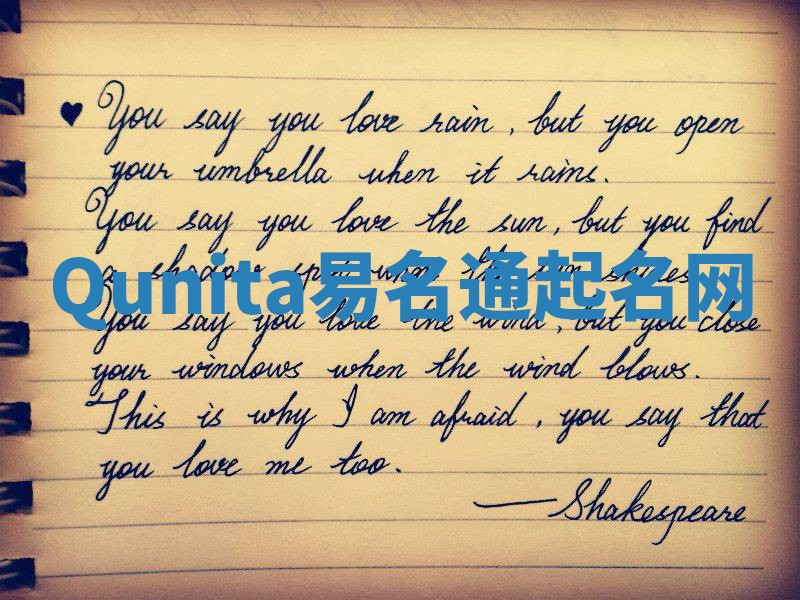 You say you love rain, but you open
your umbrella when it rains.
You say you love the sun, but you find
a shadow spot when the sun shines.
Qunita易名通起名网
You say you love the wind, but you close
your windows when the wind blows.
This is why I am afraid, you say that
you love me too.
—Shakespeare